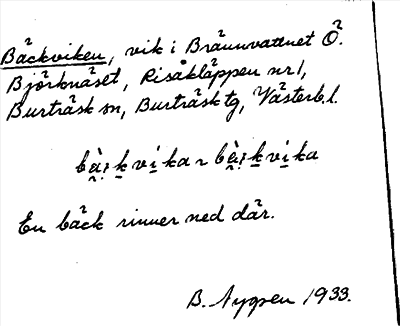 Bäckviken, vik i Brännvattnet Ö.
Björknäset, Risåkläppen nr 1,
Burträsk sn, Burträsk tg, Västerb. l.
vika ~ vika
En bäck rinner ned där.
B. Nygren 1933.